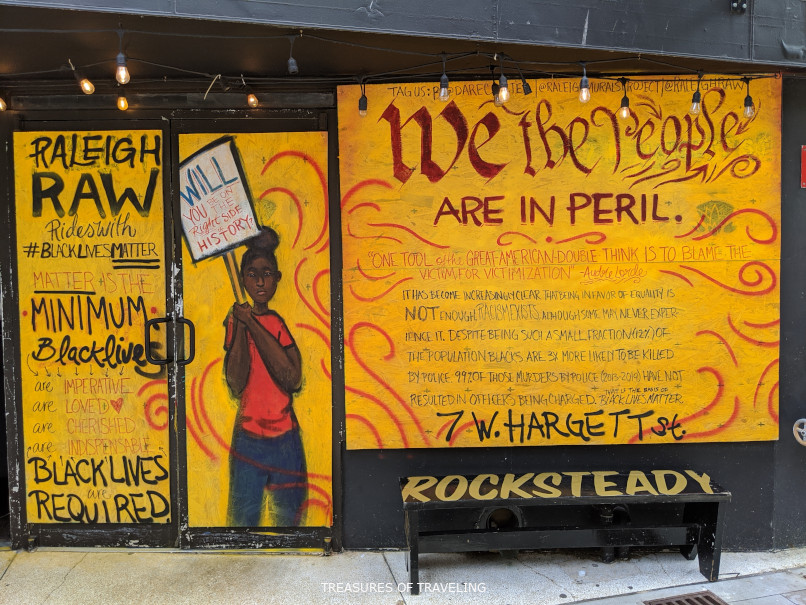 RALEIGH
RAW
Rides with
#BLACKLIVESMATTER
MATTER IS THE
MINIMUM
Blacklives
are IMPERATIVE
are LOVED
are CHERISHED
are INDISPENSABLE
BLACK LIVES
are
REQUIRED
WILL
YOU BE ON
THE
Right SIDE
of
HISTORY
TAG US: @RALEIGHMURALSPROJECT/@RALEIGHRAW
We the People
ARE IN PERIL.
"ONE TOOL of the GREAT-AMERICAN-DOUBLE THINK IS TO BLAME THE
VICTIM FOR VICTIMIZATION" -Audre Lorde
IT HAS BECOME INCREASINGLY CLEAR THAT BEING IN FAVOR OF EQUALITY IS
NOT ENOUGH. RACISM EXISTS, ALTHOUGH SOME MAY NEVER EXPER-
IENCE IT. DESPITE BEING SUCH A SMALL FRACTION (12%) OF
THE POPULATION BLACKS ARE 3X MORE LIKELY TO BE KILLED
BY POLICE. 99% OF THOSE MURDERS BY POLICE (2013-2019) HAVE NOT
RESULTED IN OFFICERS BEING CHARGED. BLACK LIVES MATTER
7 W. HARGETT St.
ROCKSTEADY
TREASURES OF TRAVELING